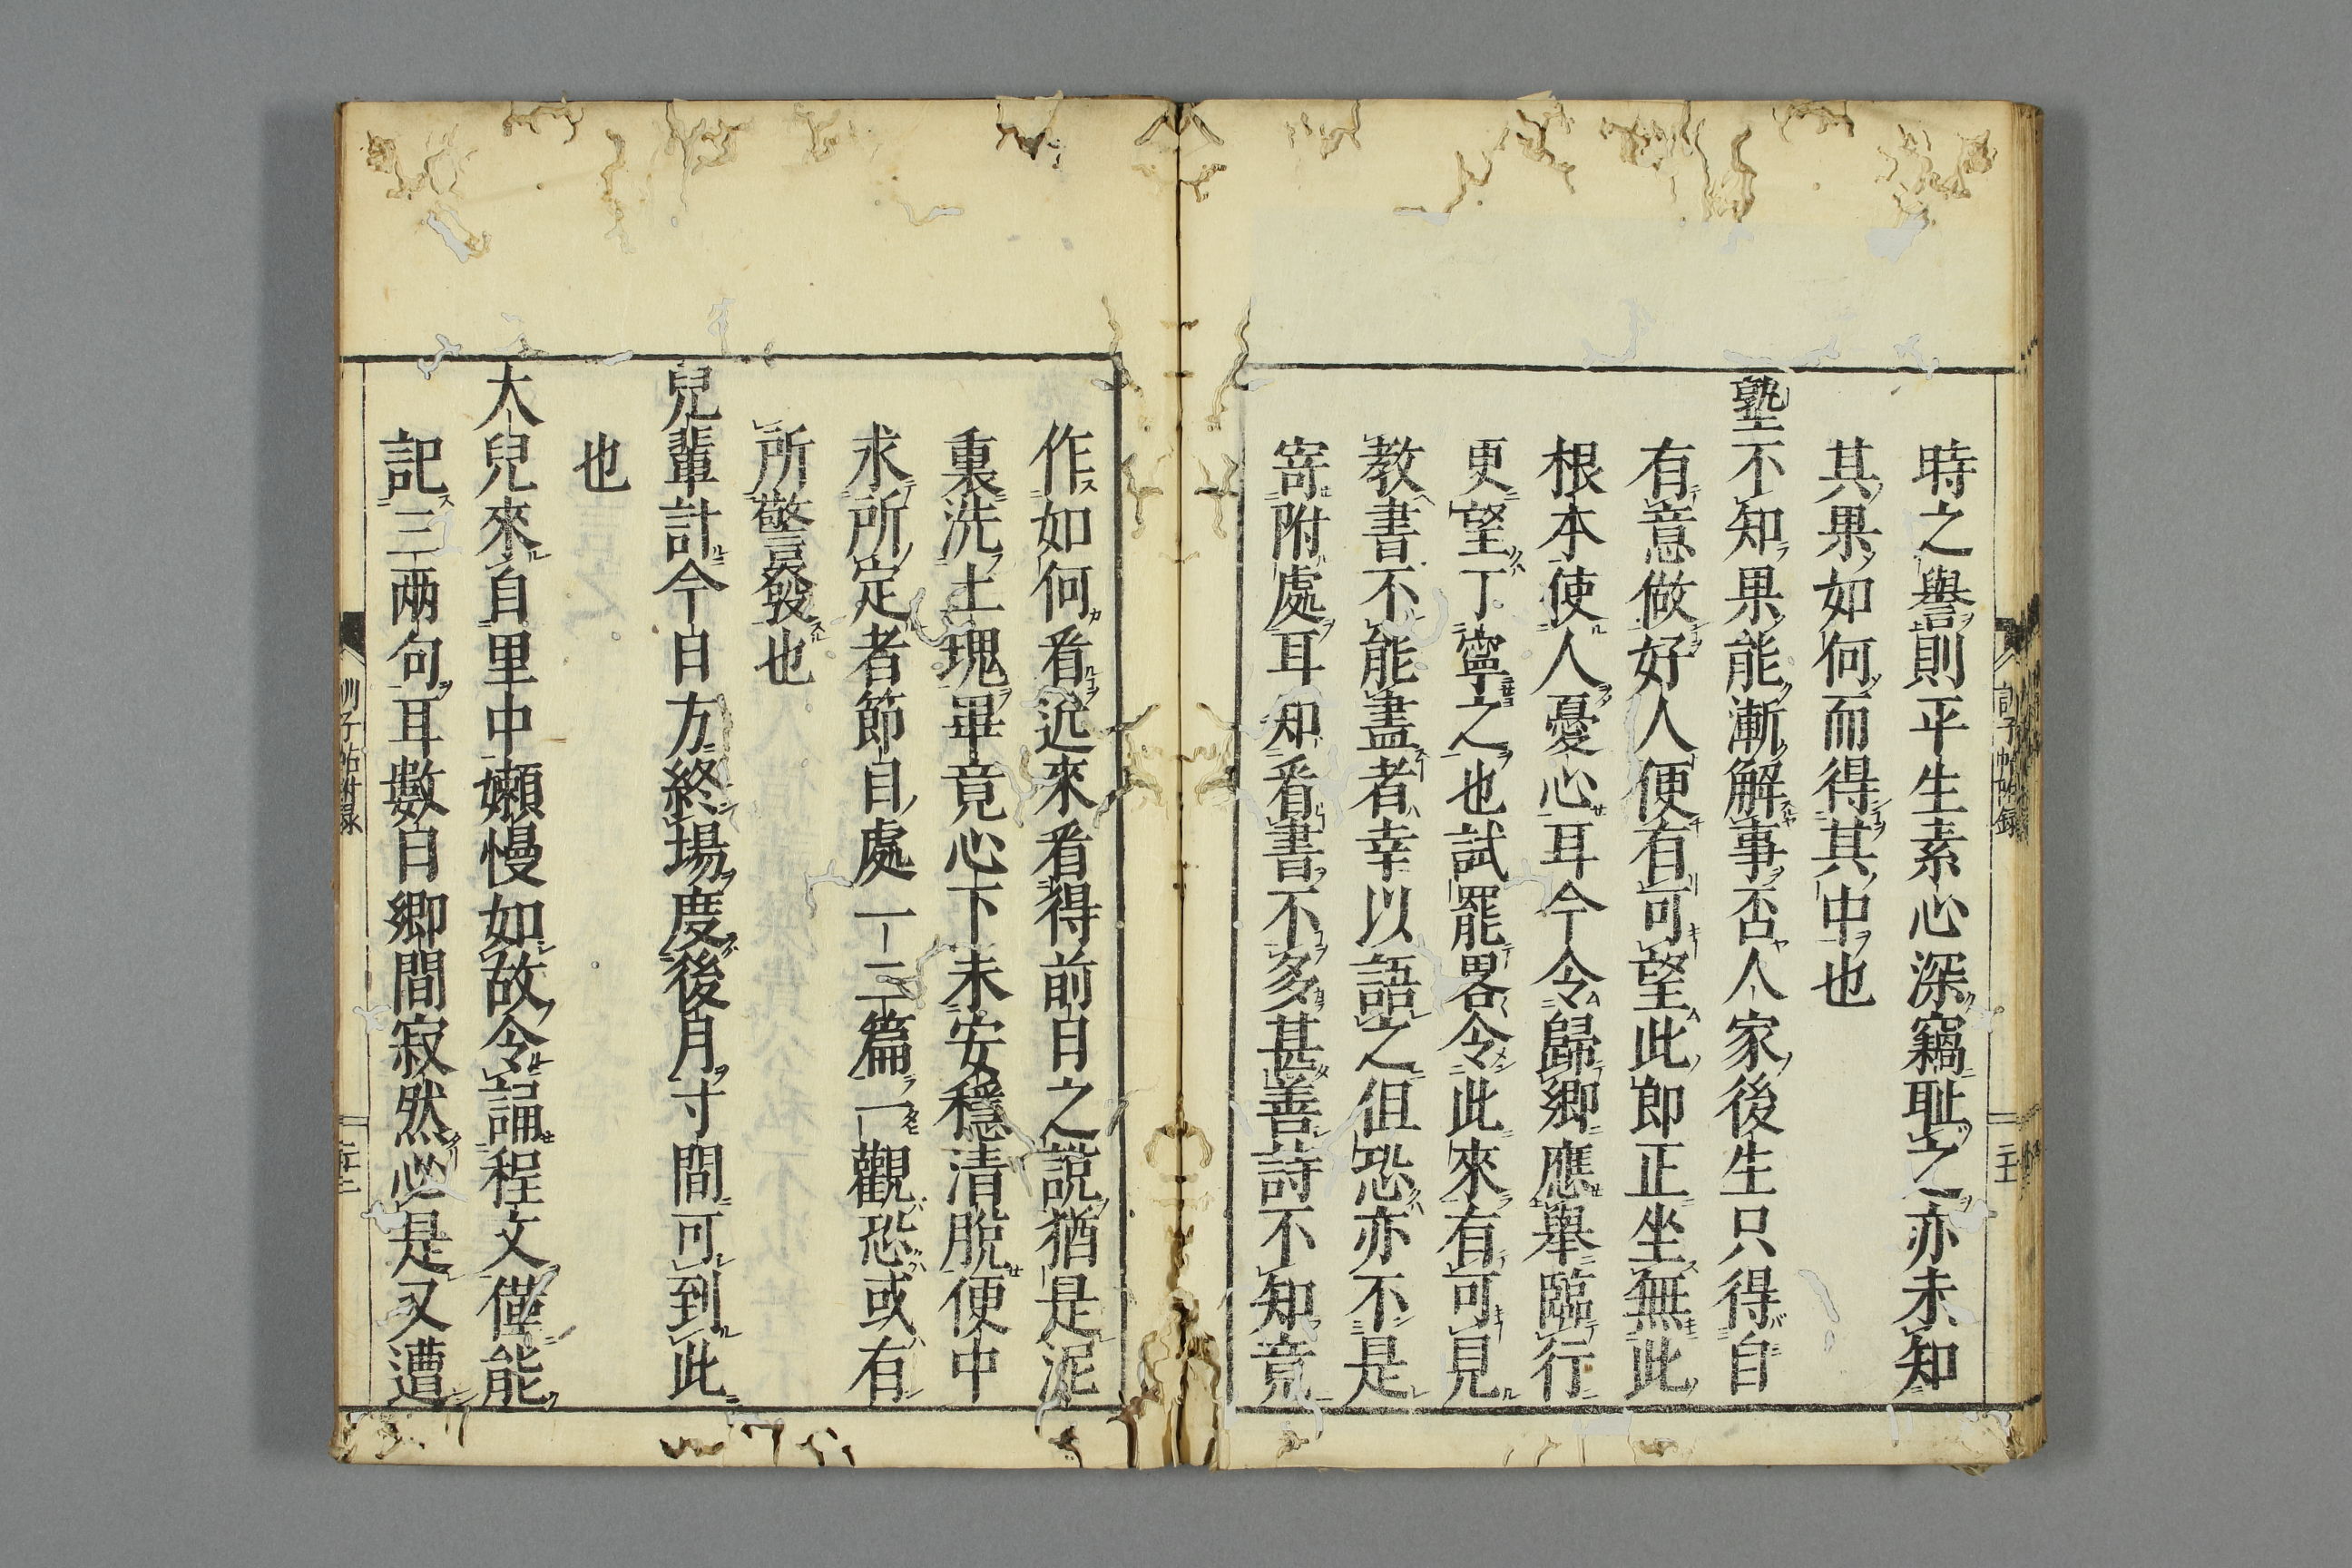 時之譽則平生素心深竊耻之亦未知
其果如何而得其中也
塾不知果能漸解事否人家後生只得自
有意做好人便有可望此即正坐無此
根本使人憂心耳今令歸鄉應舉臨行
更望丁寧之也試罷畧令此來有可見
教書不能盡者幸以語之但恐亦不是
寄附處耳知看書不多甚善詩不知竟
作如何看近來看得前日之說猶是泥
裏洗土塊畢竟心下未安穩清脫便中
求所定者節目處一二篇一觀恐或有
所警發也
兒輩計今日方終場度後月寸間可到此
也
大兒來自里中嬾慢如故令誦程文僅能
記三兩句耳數日鄉間寂然必是又遭